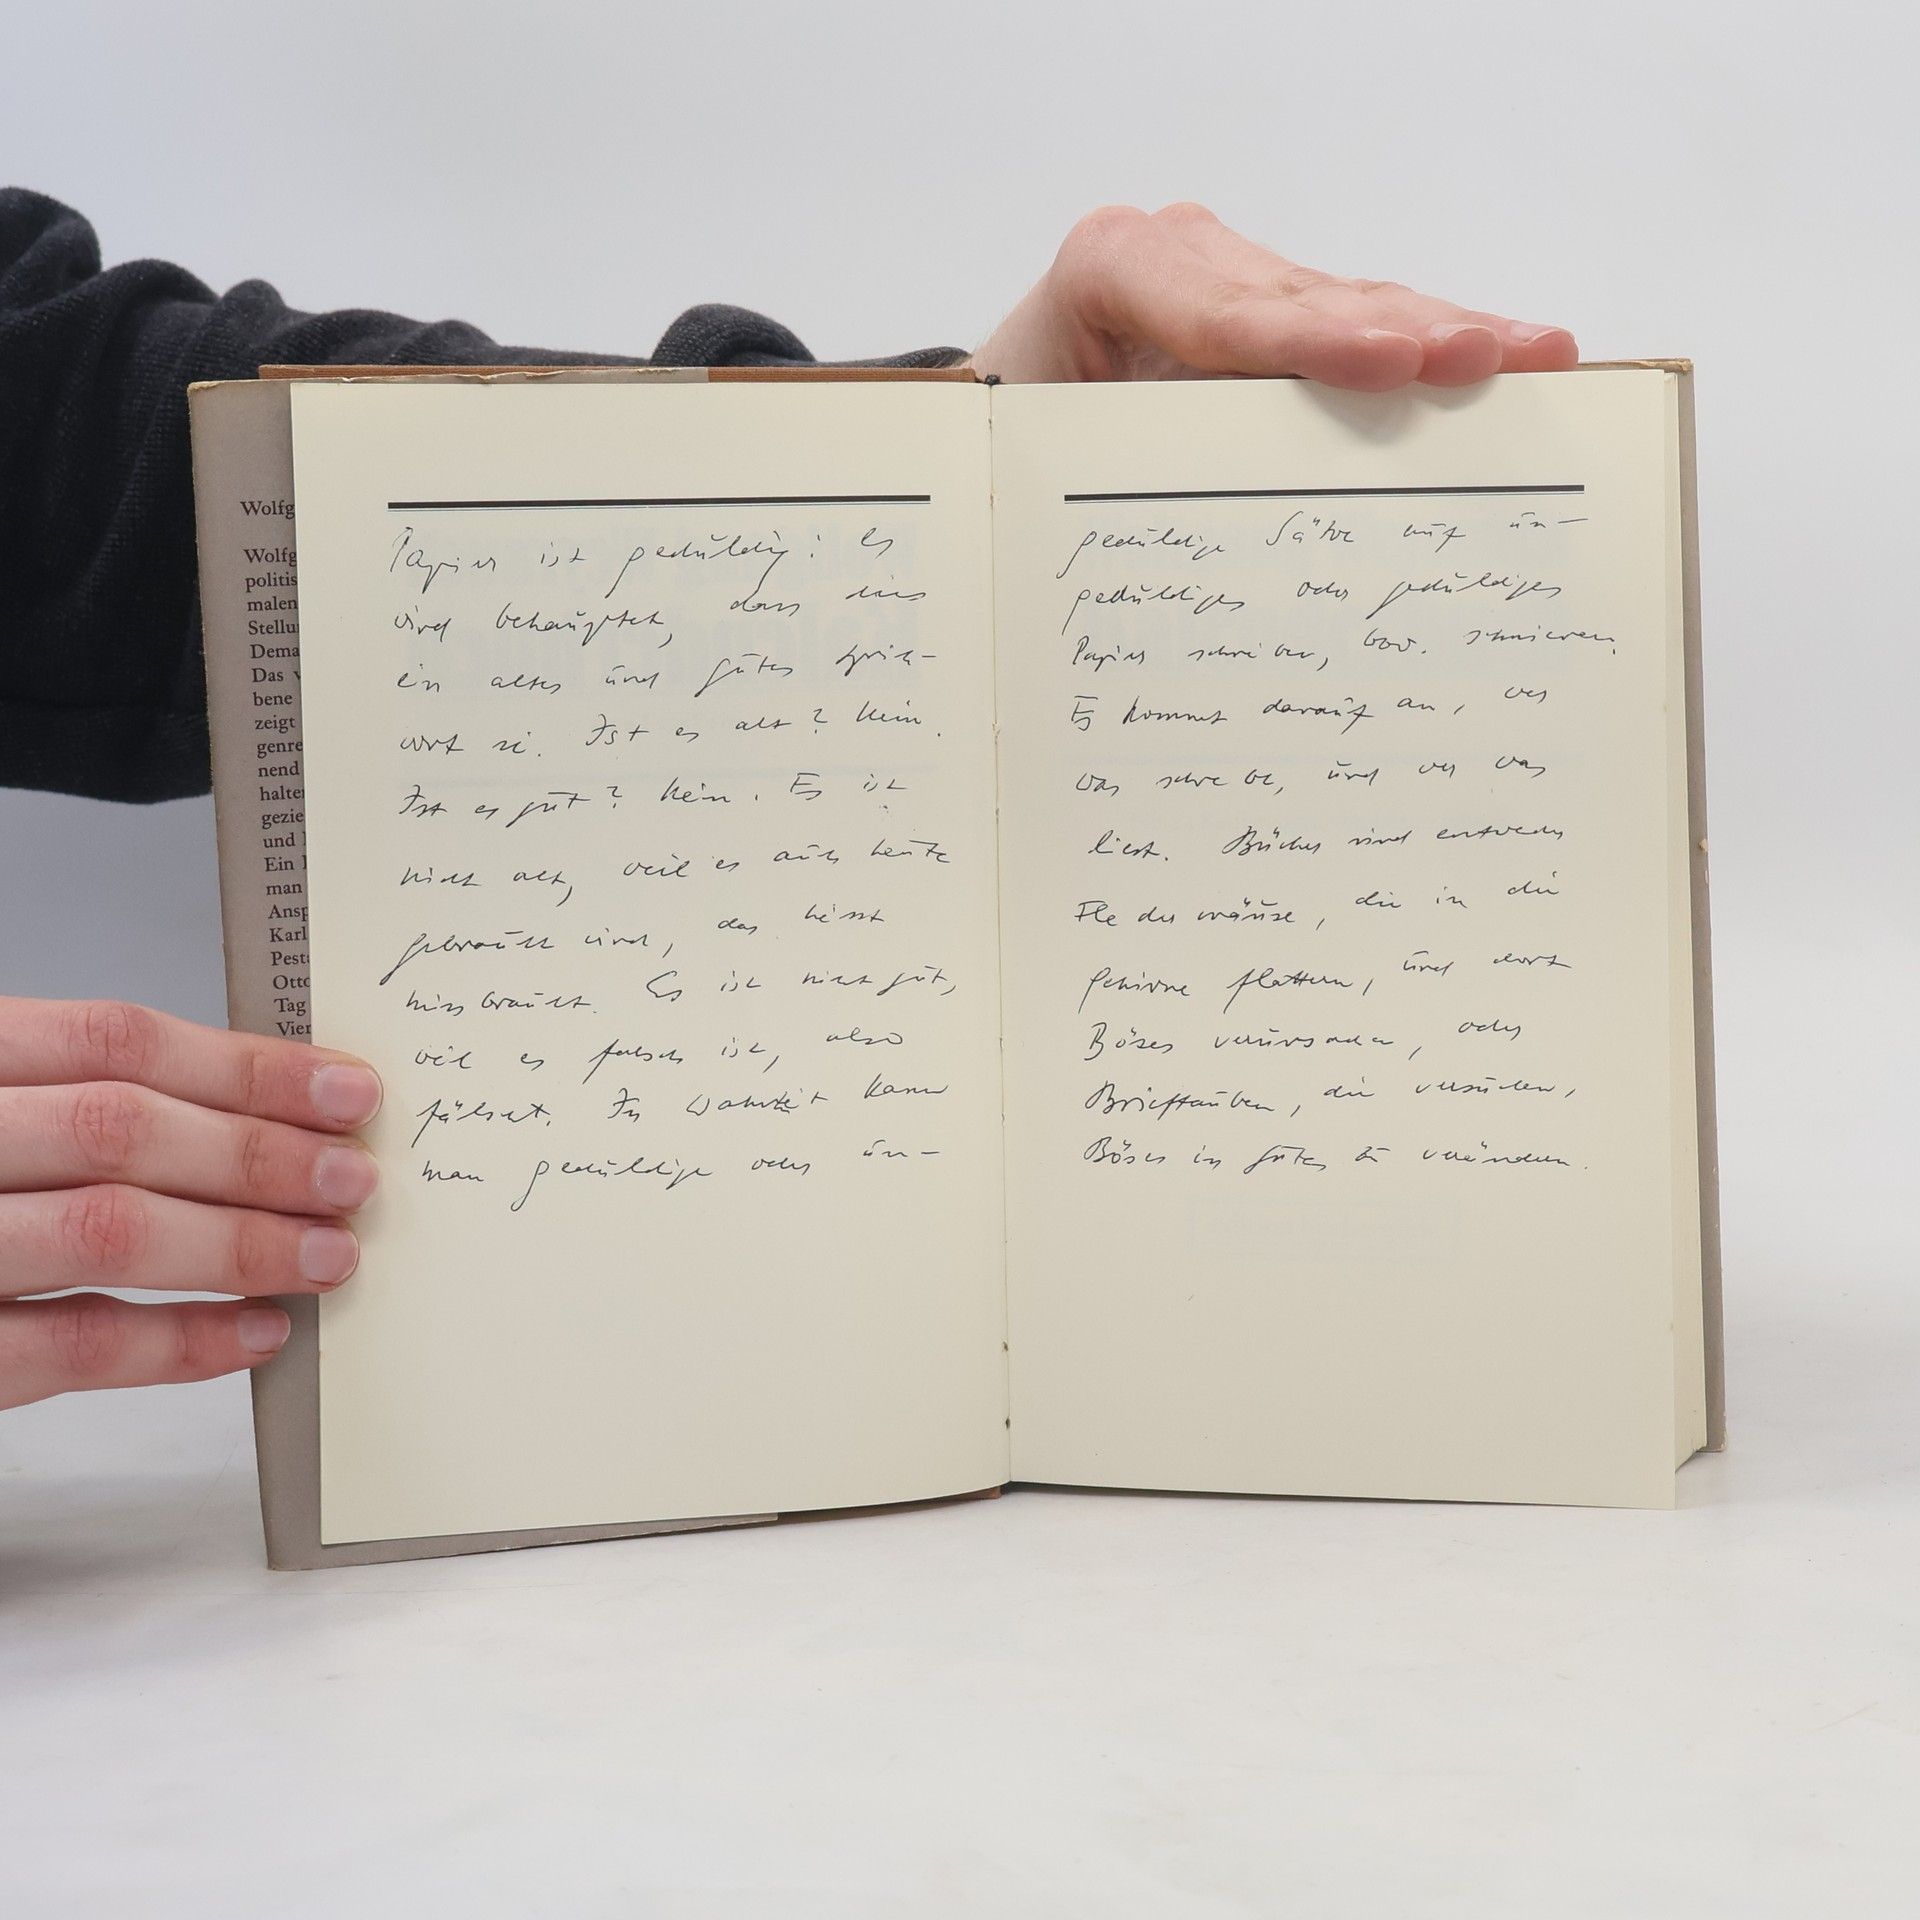 Wolfg
Wolfg
politis
malen
Stellu
Dema
Das v
bene
zeigt
genre
nend
halten
gezie
und
Ein
man
Ansp
Karl
Pest
Otto
Tag
Vier
Papier ist geduldig: Es
wird behauptet, dass dies
ein altes und gutes Sprich-
wort sei. Ist es alt? Nein.
Ist es gut? Nein. Es ist
nicht alt, weil es auch heute
gebraucht wird, das heisst
missbraucht. Es ist nicht gut,
weil es falsch ist, also
fälscht. In Wahrheit kann
man geduldige oder un-
geduldige Sätze auf un-
geduldiges oder geduldiges
Papier schreiben, bzw. schmieren.
Es kommt darauf an, wer
was schreibe, und wer was
liest. Bücher sind entweder
Fledermäuse, die in die
Gehirne flattern, und dort
Böses verursachen, oder
Brieftauben, die versuchen,
Böses in Gutes zu verändern.